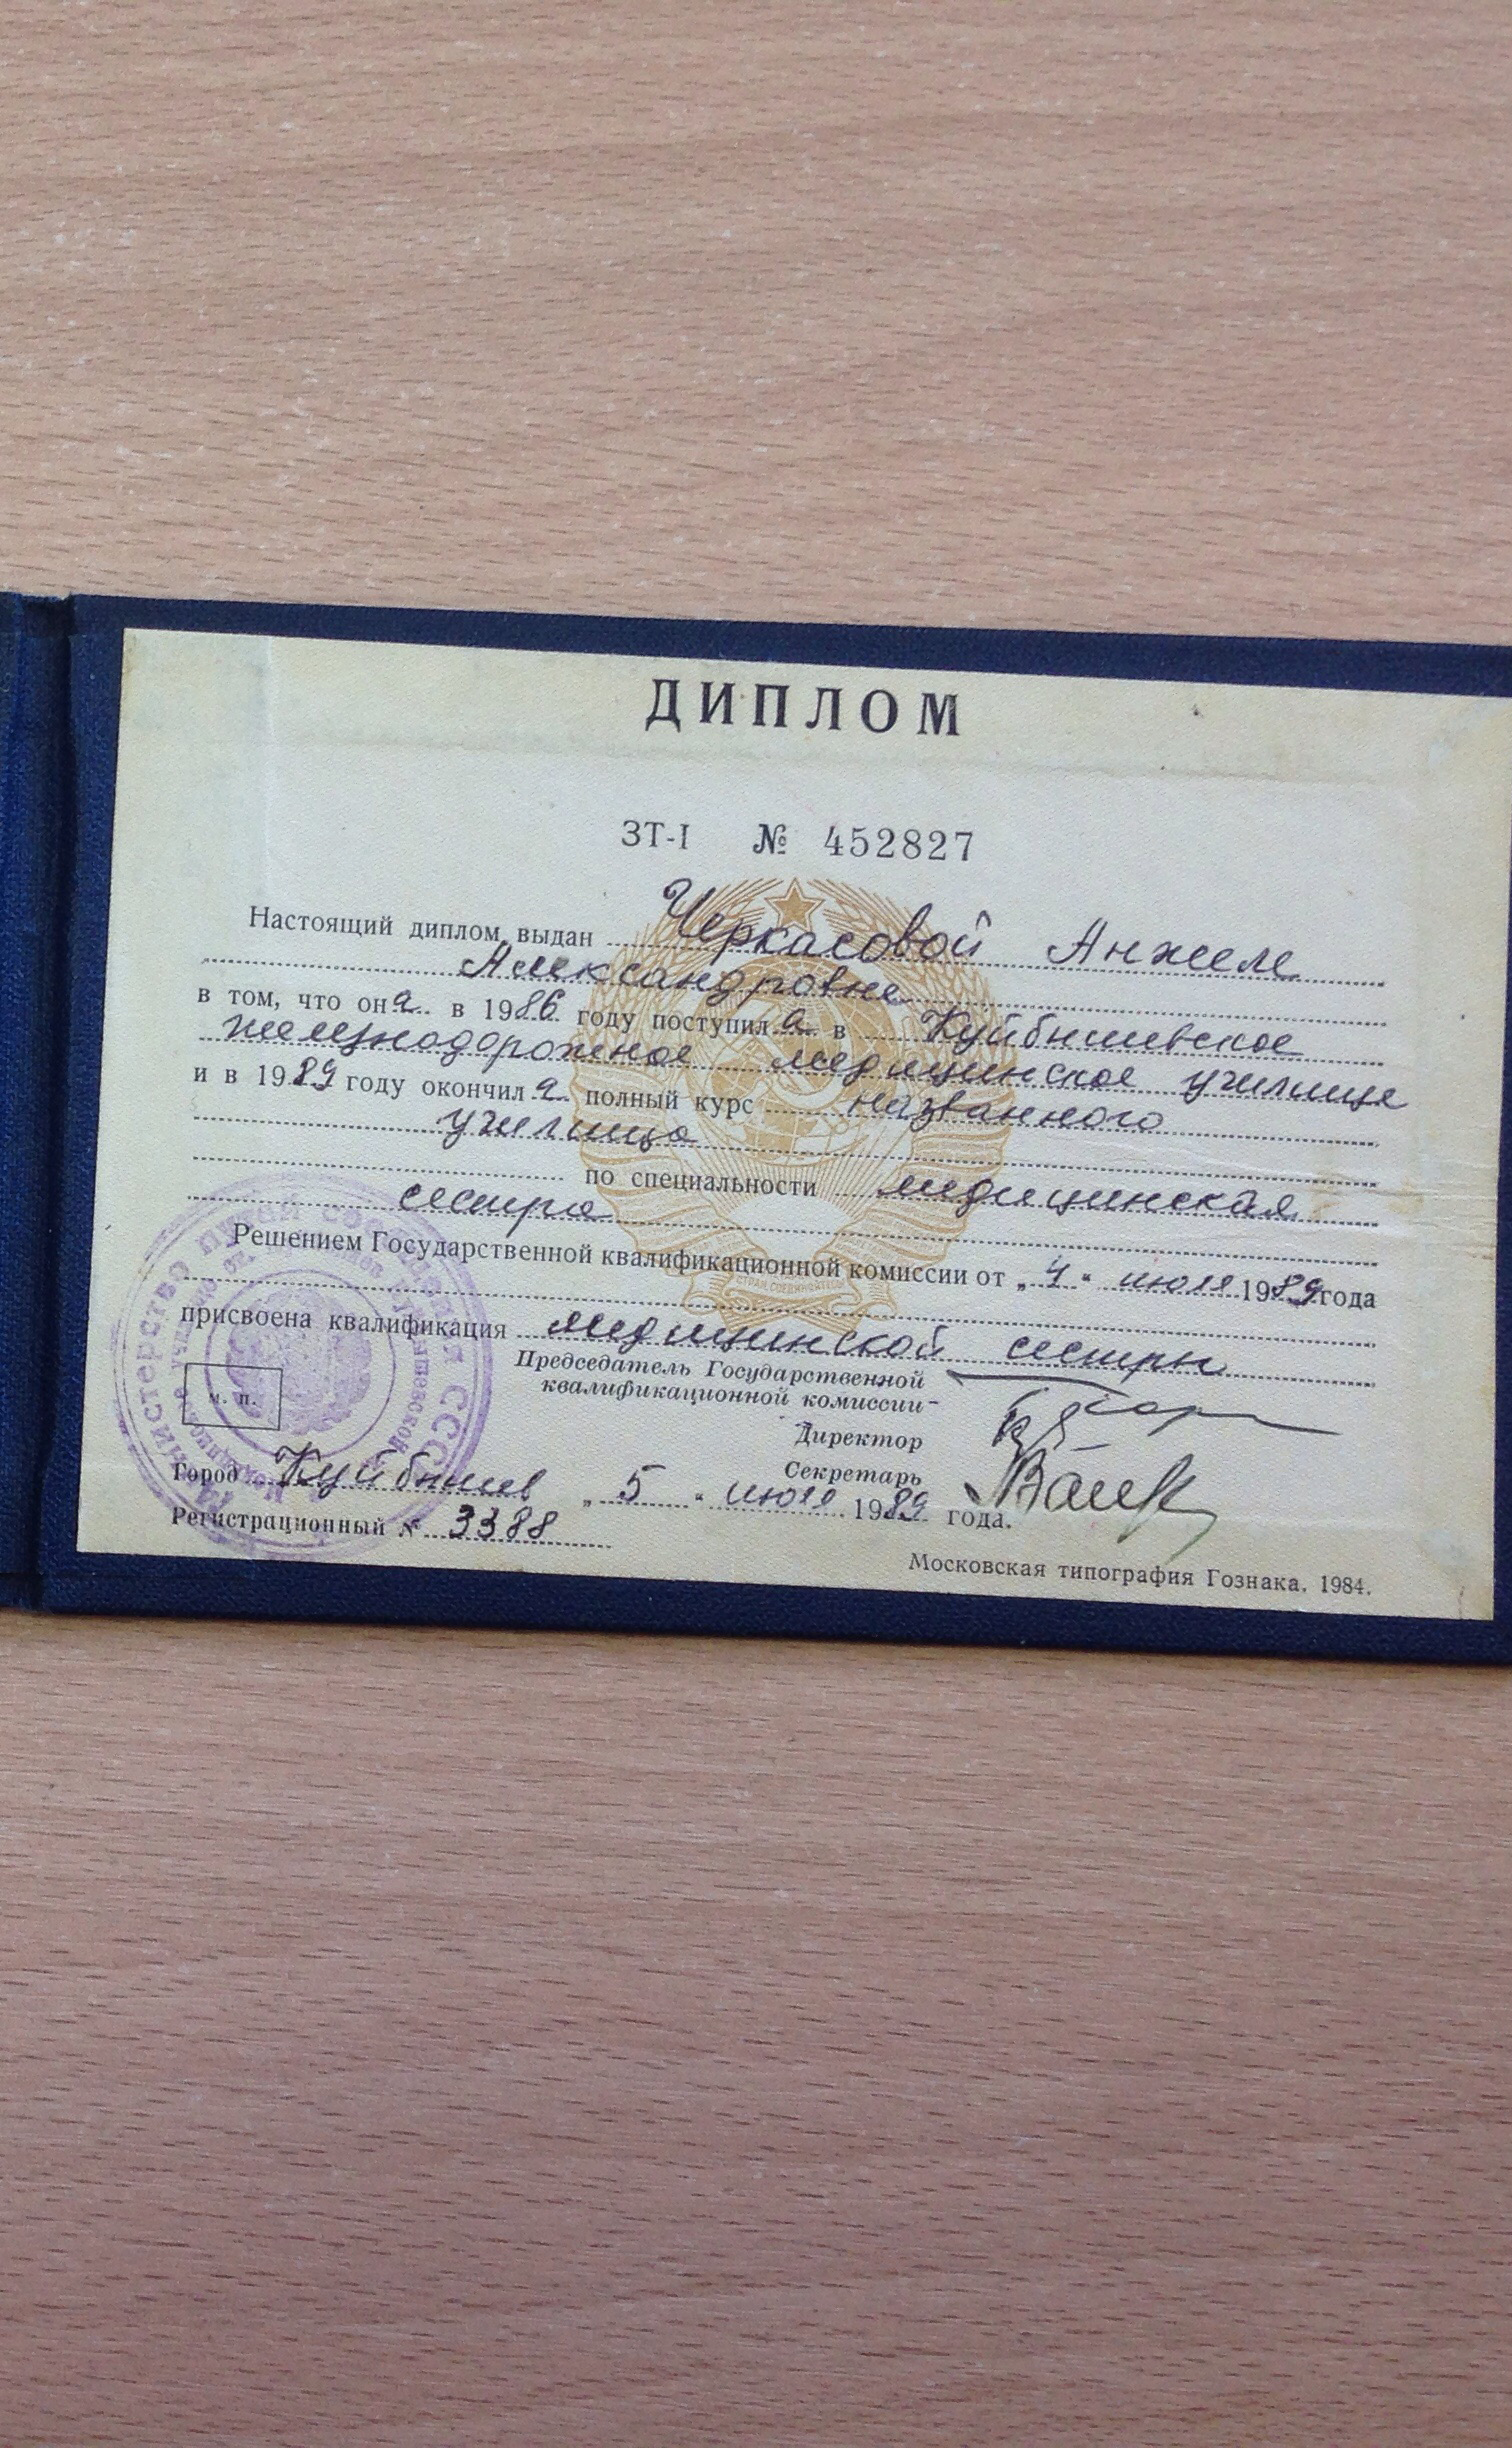 ДИПЛОМ
ЗТ-I № 452827
Настоящий диплом выдан Черкасовой Анжеле
Александровне
в том, что она в 1986 году поступила в Куйбышевское
железнодорожное медицинское училище
и в 1989 году окончила полный курс названного
училища
по специальности медицинская
сестра
Решением Государственной квалификационной комиссии от „4“ июля 1989 года
присвоена квалификация медицинской сестры
Председатель Государственной
квалификационной комиссии
Директор
Секретарь
м. п.
Город Куйбышев „5“ июля 1989 года.
Регистрационный № 3388
Московская типография Гознака. 1984.
МИНИСТЕРСТВО ПУТЕЙ СООБЩЕНИЯ СССР